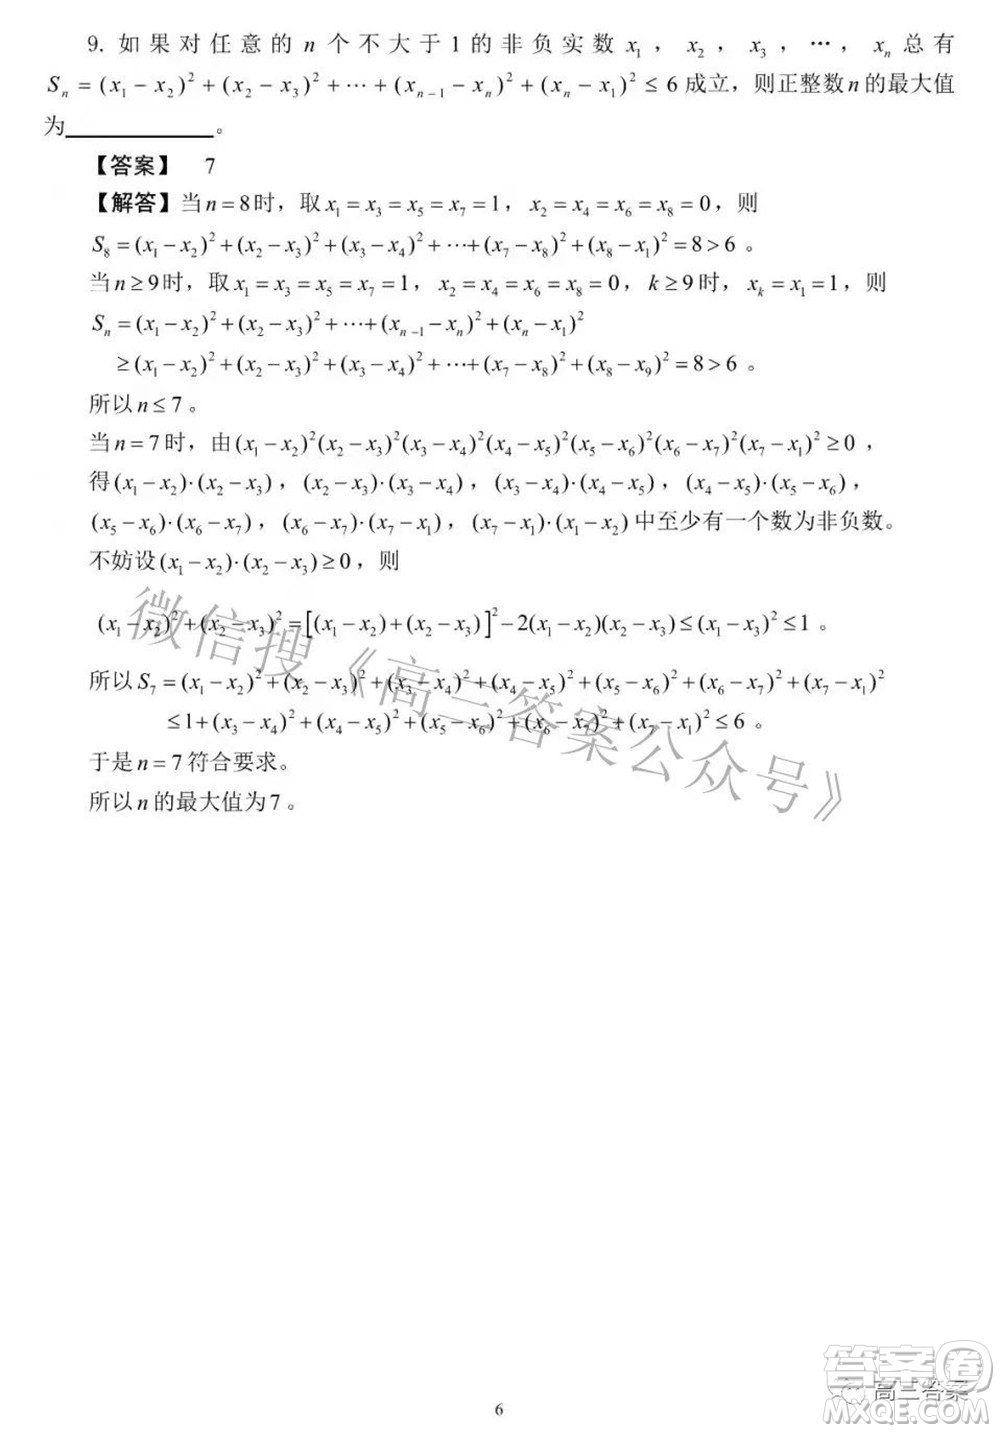 9. 如果对任意的 n 个不大于 1 的非负实数 x₁，x₂，x₃，…，xₙ 总有
Sₙ = (x₁ − x₂)² + (x₂ − x₃)² + ⋯ + (xₙ₋₁ − xₙ)² + (xₙ − x₁)² ≤ 6 成立，则正整数 n 的最大值
为____________。
【答案】 7
【解答】当 n = 8 时，取 x₁ = x₃ = x₅ = x₇ = 1，x₂ = x₄ = x₆ = x₈ = 0，则
S₈ = (x₁ − x₂)² + (x₂ − x₃)² + (x₃ − x₄)² + ⋯ + (x₇ − x₈)² + (x₈ − x₁)² = 8 > 6 。
当 n ≥ 9 时，取 x₁ = x₃ = x₅ = x₇ = 1，x₂ = x₄ = x₆ = x₈ = 0，k ≥ 9 时，xₖ = x₁ = 1，则
Sₙ = (x₁ − x₂)² + (x₂ − x₃)² + ⋯ + (xₙ₋₁ − xₙ)² + (xₙ − x₁)²
≥ (x₁ − x₂)² + (x₂ − x₃)² + (x₃ − x₄)² + ⋯ + (x₇ − x₈)² + (x₈ − x₉)² = 8 > 6 。
所以 n ≤ 7 。
当 n = 7 时，由 (x₁ − x₂)²(x₂ − x₃)²(x₃ − x₄)²(x₄ − x₅)²(x₅ − x₆)²(x₆ − x₇)²(x₇ − x₁)² ≥ 0 ，
得 (x₁ − x₂)·(x₂ − x₃)，(x₂ − x₃)·(x₃ − x₄)，(x₃ − x₄)·(x₄ − x₅)，(x₄ − x₅)·(x₅ − x₆)，
(x₅ − x₆)·(x₆ − x₇)，(x₆ − x₇)·(x₇ − x₁)，(x₇ − x₁)·(x₁ − x₂) 中至少有一个数为非负数。
不妨设 (x₁ − x₂)·(x₂ − x₃) ≥ 0，则
(x₁ − x₂)² + (x₂ − x₃)² = [(x₁ − x₂) + (x₂ − x₃)]² − 2(x₁ − x₂)(x₂ − x₃) ≤ (x₁ − x₃)² ≤ 1 。
所以 S₇ = (x₁ − x₂)² + (x₂ − x₃)² + (x₃ − x₄)² + (x₄ − x₅)² + (x₅ − x₆)² + (x₆ − x₇)² + (x₇ − x₁)²
≤ 1 + (x₃ − x₄)² + (x₄ − x₅)² + (x₅ − x₆)² + (x₆ − x₇)² + (x₇ − x₁)² ≤ 6 。
于是 n = 7 符合要求。
所以 n 的最大值为 7 。
微信搜《高三答案公众号》
答案卷
高三答案
MXQE.COM
6